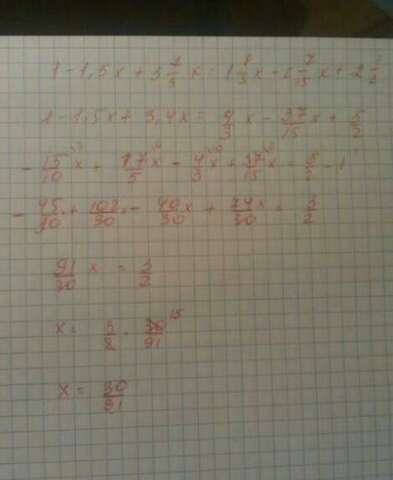 1 - 1,5x + 3 2/5 x = 1 1/3 x - 2 7/15 x + 2 1/2
1 - 1,5x + 3,4x = 4/3 x - 37/15 x + 5/2
- 15/10 x + 17/5 x - 4/3 x + 37/15 x = 5/2 - 1
- 45/30 + 102/30 - 40/30 x + 74x/30 = 3/2
91/30 x = 3/2
x = 3/2 · 30/91 15
x = 30/91